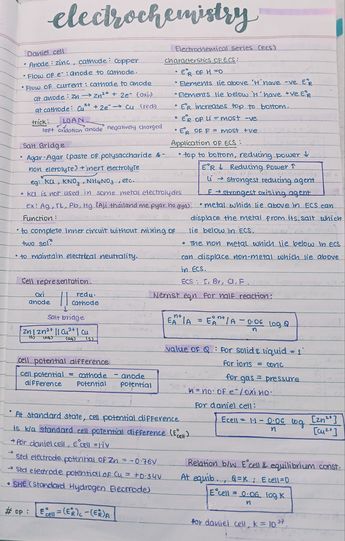 electrochemistry
Daniel cell
• Anode: zinc, cathode: copper
• Flow of e⁻: anode to cathode.
• Flow of current: cathode to anode
at anode: Zn → Zn²⁺ + 2e⁻ (oxi)
at cathode: Cu²⁺ + 2e⁻ → Cu (red)
trick: LOAN
left oxidation anode negatively charged
Salt Bridge
• Agar-Agar (paste of polysaccharide &
non elctrolyte) + inert electrolyte
eg: KCl, KNO₃, NH₄NO₃, etc.
• KCl is not used in some metal electrolydes
Ex: Ag, TL, Pb, Hg (Aji thailand me pyar ho gya)
Function:
• to complete inner circuit without mixing of
two solⁿ
• to maintain electrical neutrality.
Cell representation.
oxi || redu.
anode || cathode
Salt bridge
Zn|Zn²⁺||Cu²⁺|Cu
(s) (aq) (aq) (s)
cell potential difference
cell potential = cathode - anode
difference Potential potential
• At standard state, cell potential difference
is k/a standard cell potential difference (E°cell)
→ For daniel cell, E°cell = 1.1V
→ Std electrode potential of Zn = -0.76V
→ Std electrode potential of Cu = +0.34V
• SHE (Standard Hydrogen Electrode)
# op: E°cell = (E°R)c - (E°R)A
Electrochemical series (ECS)
Characteristics of ECS:
• E°R of H = 0
• Elements lie above 'H' have -ve E°R
• Elements lie below 'H' have +ve E°R
• E°R increases top to bottom.
• E°R of Li = most -ve
• E°R of F = most +ve
Application of ECS:
• top to bottom, reducing power ↓
E°R ↓ Reducing Power ↑
Li → strongest reducing agent
F → strongest oxising agent
• metal which lie above in ECS can
displace the metal from its salt which
lie below in ECS.
• The non metal which lie below in ECS
can displace non-metal which lie above
in ECS.
ECS: I, Br, Cl, F.
Nernst eqn for half reaction:
E Aⁿ⁺/A = E° Aⁿ⁺/A - 0.06/n log Q
value of Q: For solid & liquid = 1
For ions = conc
for gas = pressure
n = no. of e⁻/oxi no.
For daniel cell:
Ecell = 1.1 - 0.06/n log [Zn²⁺]/[Cu²⁺]
Relation b/w E°cell & equilibrium const.
At equib., Q = K; Ecell = 0
E°cell = 0.06/n log K
for daniel cell, K = 10³⁷